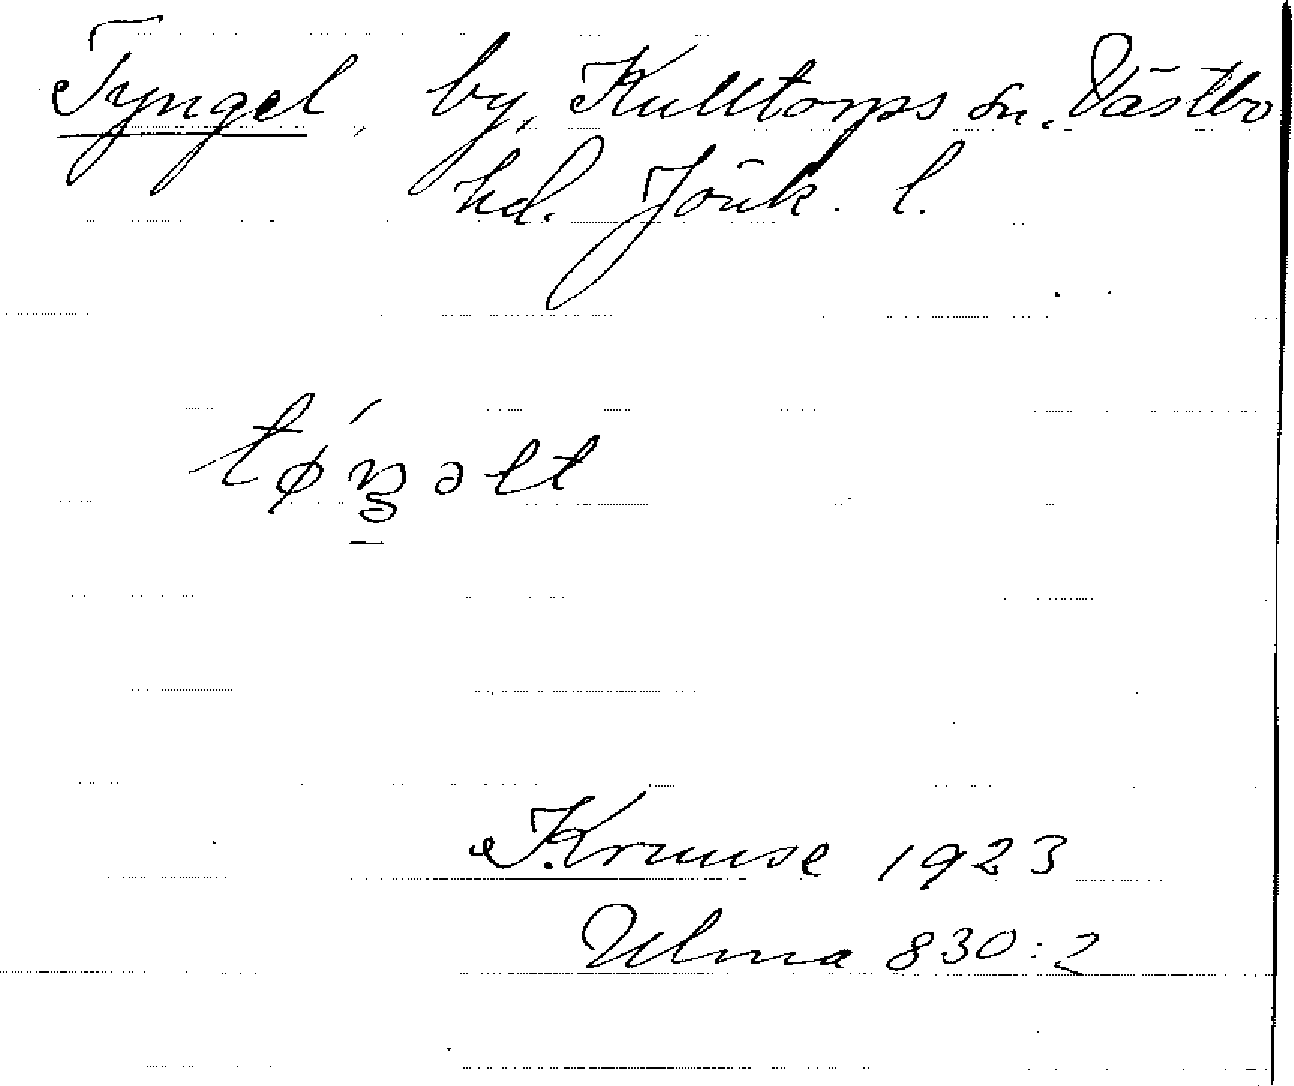 Tyngel, by, Kulltorps sn. Västbo
hd. Jönk. l.
Kruuse 1923
Ulma 830:2